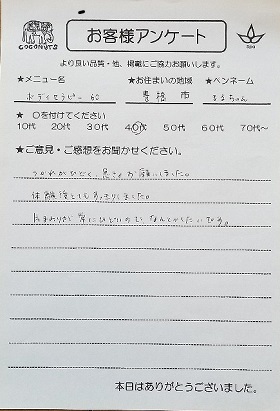 COCONUTS
お客様アンケート
SPA
より良い品質・他、掲載にご協力お願いします。
★メニュー名 ★お住まいの地域 ★ペンネーム
ボディセラピー60 豊橋 市 まるちゃん
★ ○を付けてください
10代 20代 30代 40代 50代 60代 70代〜
★ご意見・ご感想をお聞かせください。
つかれがひどく、急きょお願いしました。
体験後とてもすっきりしました。
首まわりが常にひどいので、なんとかしたいです。
本日はありがとうございました。